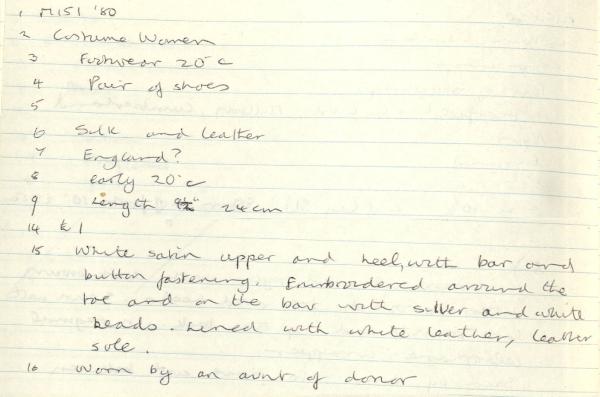 1 M151 '80
2 Costume Women
3 Footwear 20°C
4 Pair of shoes
5
6 Silk and leather
7 England?
8 early 20°C
9 Length 24cm
14 £1
15 White satin upper and heel, with bar and
button fastening. Embroidered around the
toe and on the bar with silver and white
beads. Lined with white leather, leather
sole.
16 Worn by an aunt of donor